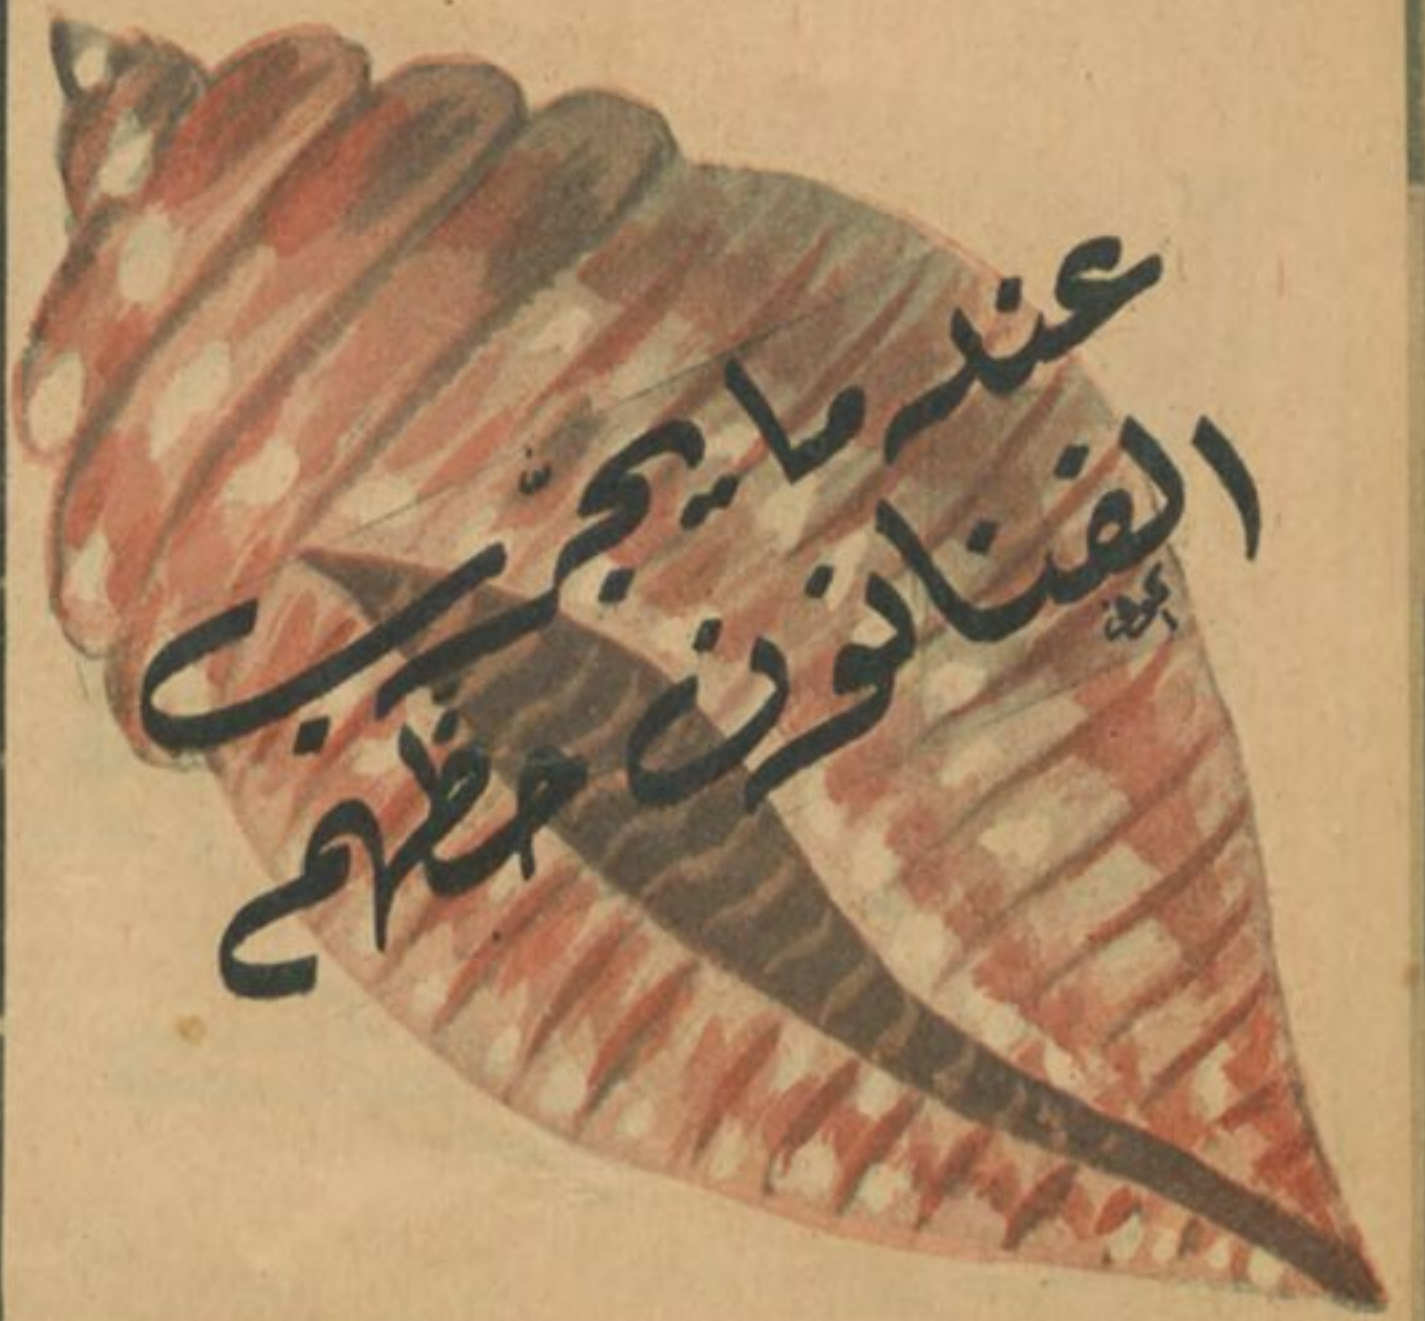 عندما يجرّب
الفنانون
حظهم